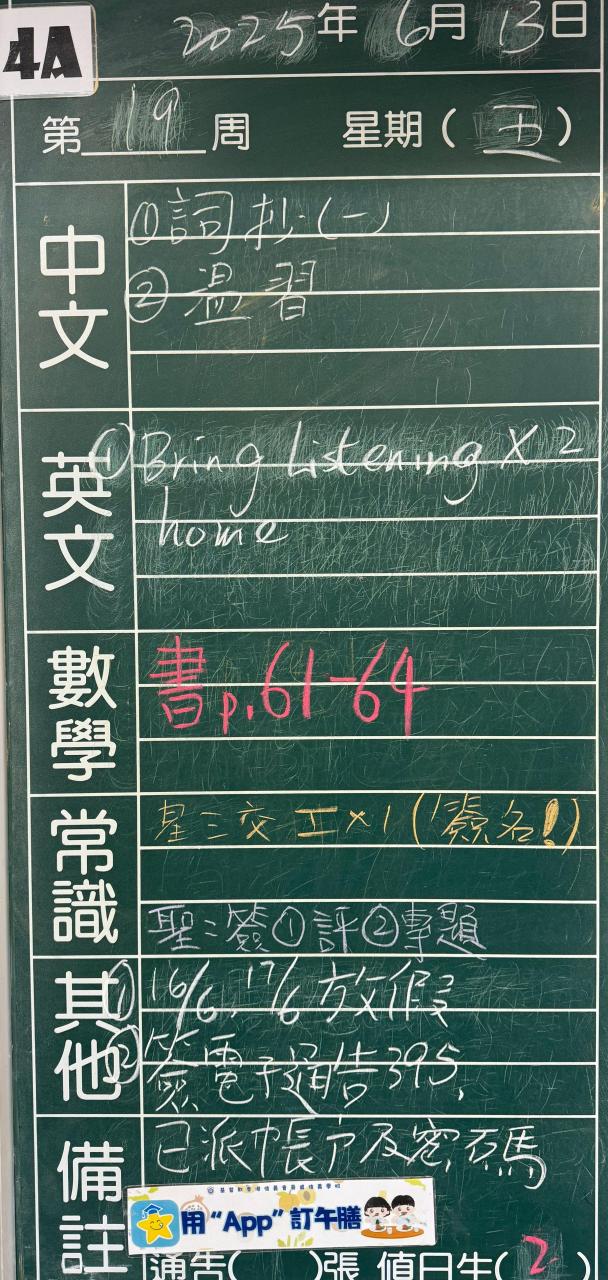 4A
2025年 6月 13日
第 19 周 星期( 五 )
中文
①詞抄(一)
②温習
英文
①Bring Listening X 2
home
數學
書p.61-64
常識
星三交工x1(簽名!)
聖:簽①評②專題
其他
①16/6, 17/6 放假
②簽電子通告395.
備註
已派帳户及密碼
用“App”訂午膳
通告( )張 值日生( 2 )